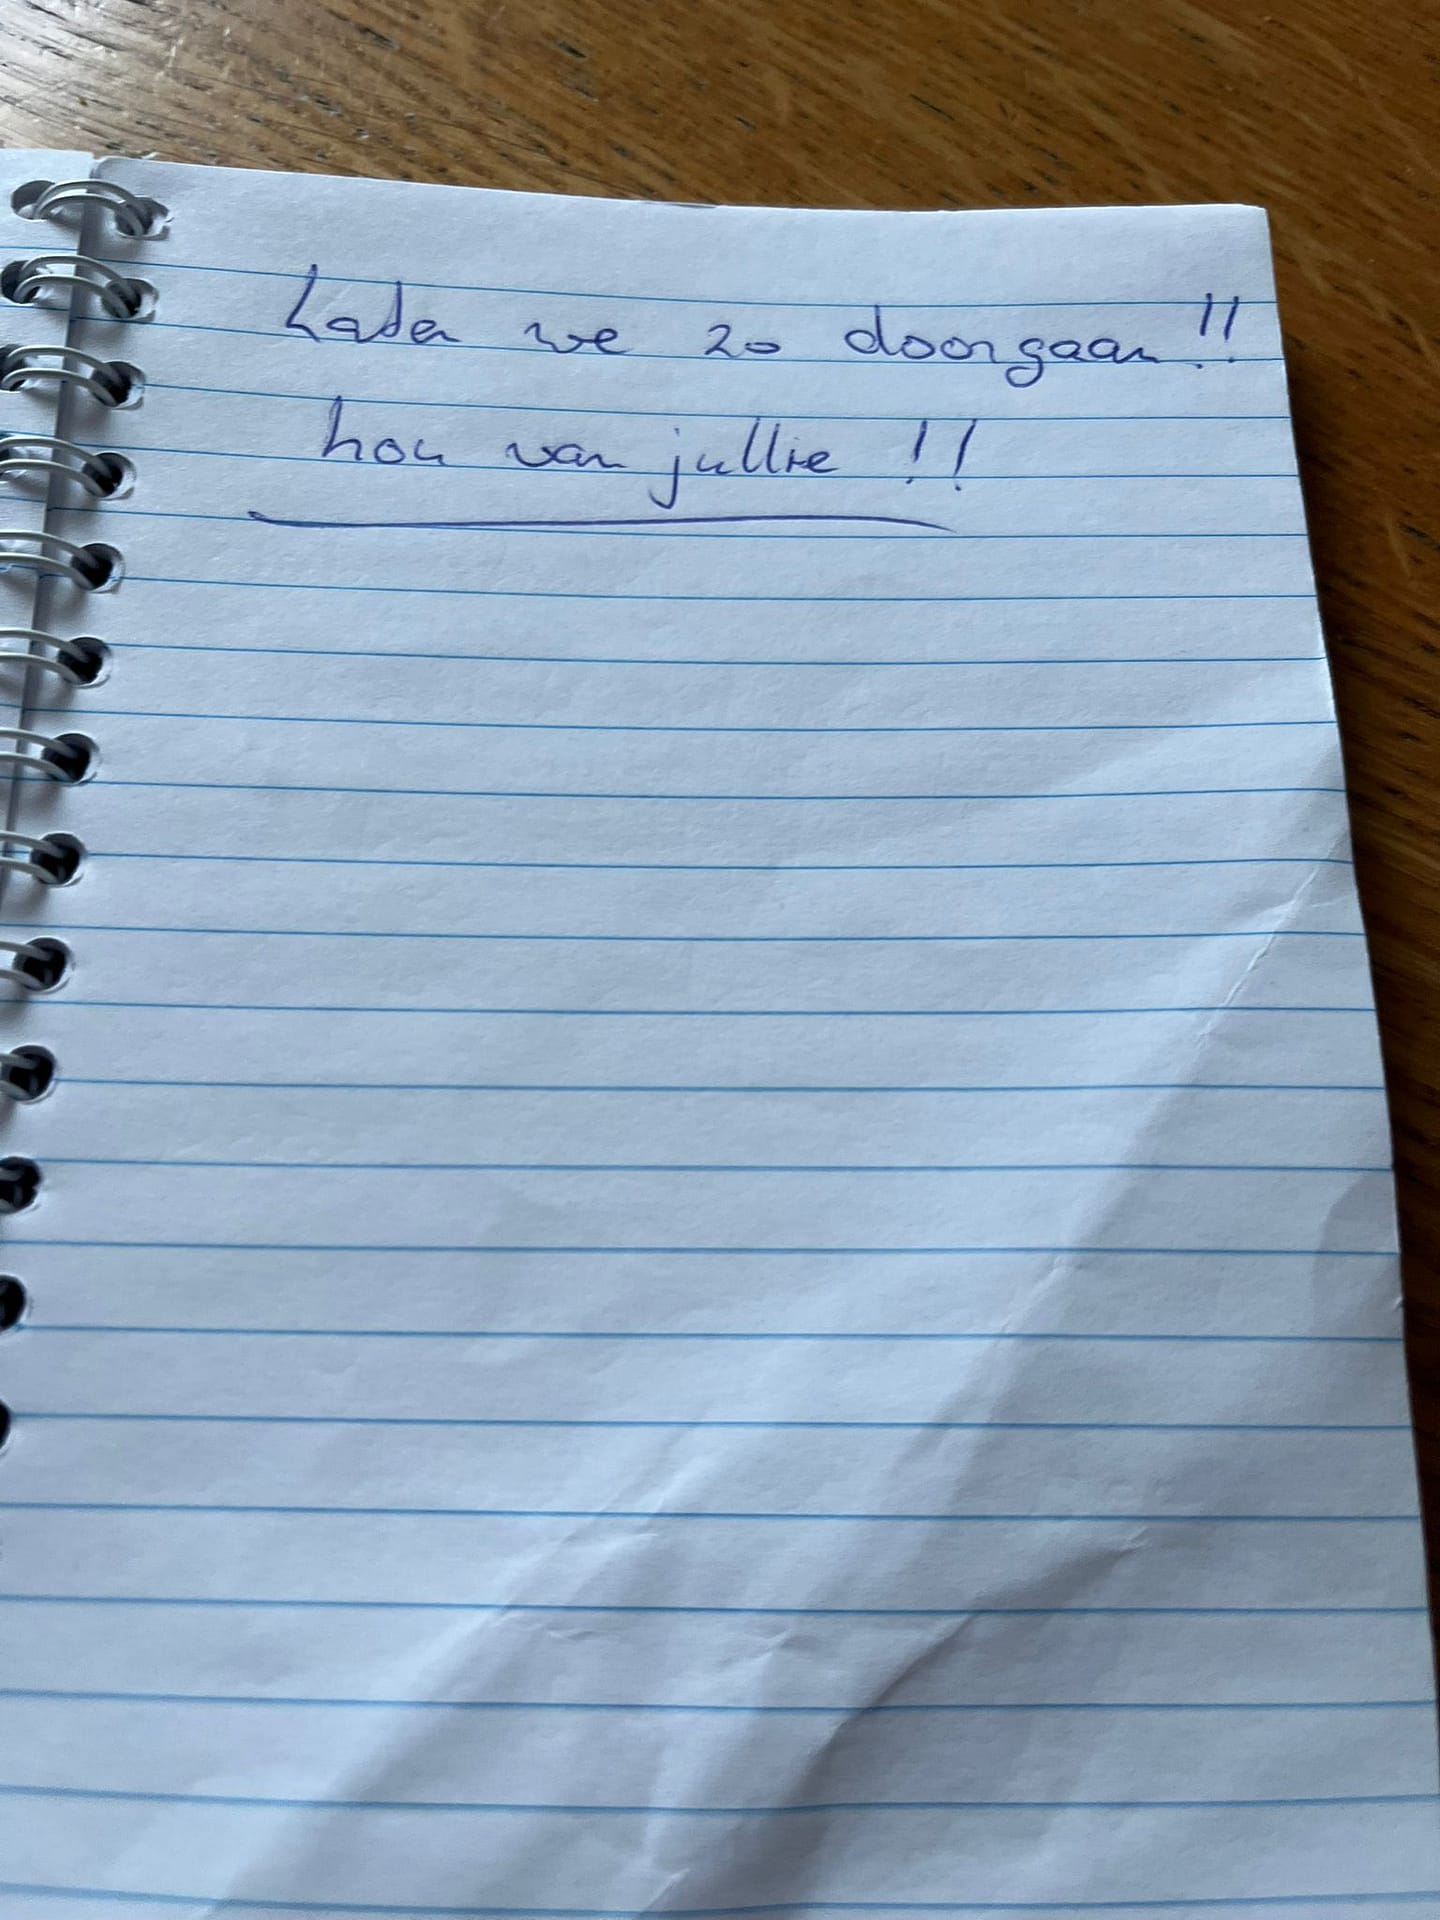 Laten we zo doorgaan!!
hou van jullie!!